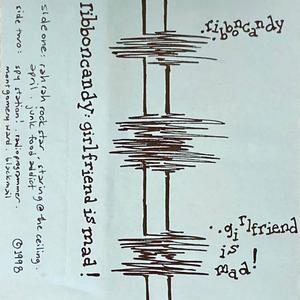 ..ribboncandy
..girlfriend
is
mad!
ribboncandy: girlfriend is mad!
side one: ah rah rock star, staring @ the ceiling.
april, junk food addict
side two: spy station!, radio programmer.
montgomery ward, blackmail
©1998